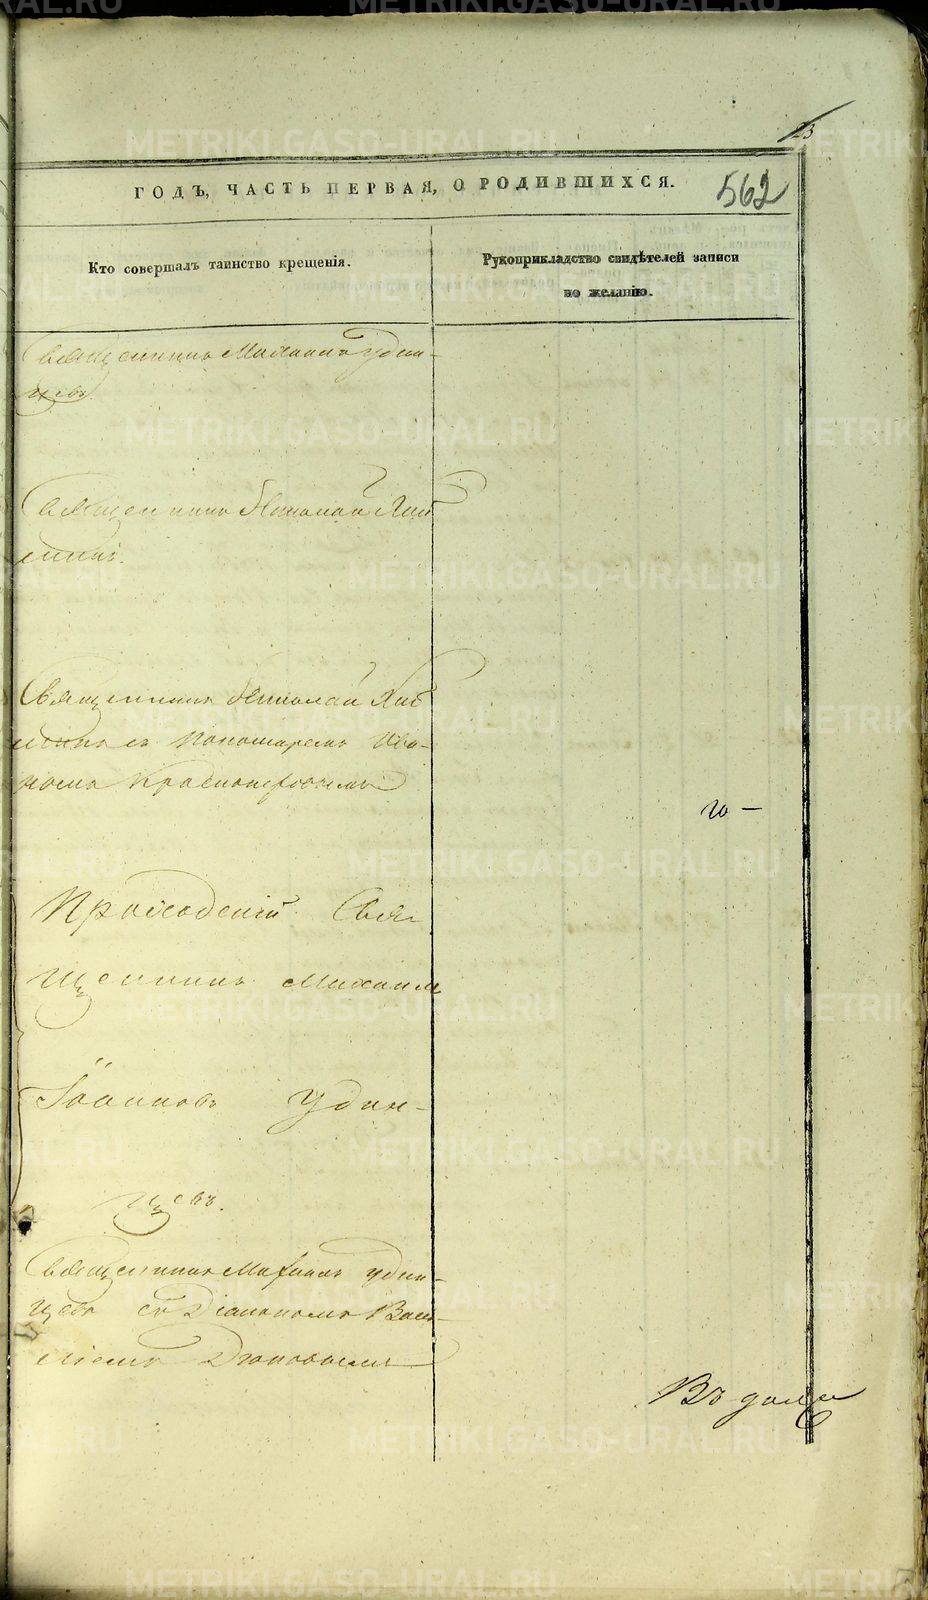 23
ГОДЪ, ЧАСТЬ ПЕРВАЯ, О РОДИВШИХСЯ.
562
Кто совершалъ таинство крещенія.
Рукоприкладство свидѣтелей записи
по желанію.
Священникъ Михаилъ Удин-
цевъ.
Священникъ Николай
Священникъ Николай
съ Пономаремъ Ива-
номъ Красноперовымъ
Приходскій Свя-
щенникъ Михаилъ
Іоанновъ Удин-
цевъ.
Священникъ Михаилъ Удин-
цевъ съ Діакономъ Васи-
ліемъ
METRIKI.GASO-URAL.RU